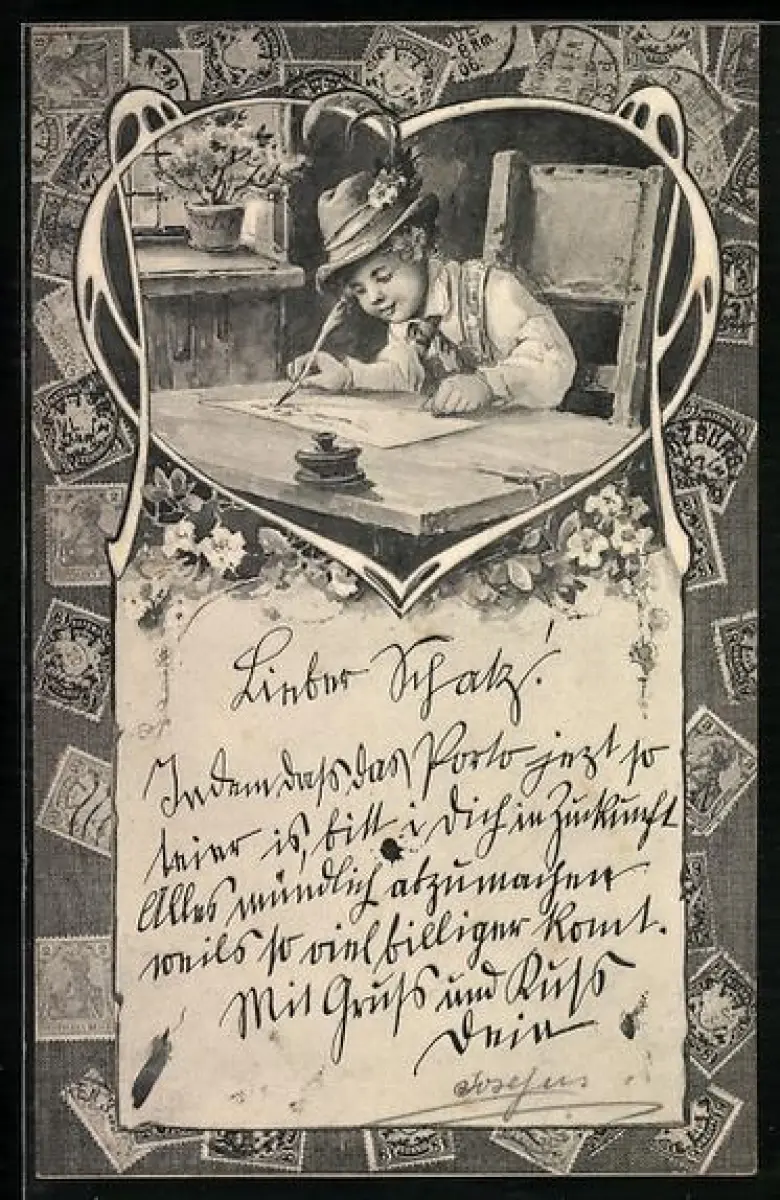 Lieber Schatz!
Indem dass das Porto jezt so
teier is, bitt i Dich in Zuckunft
Alles mündlich abzumachen
weils so viel billiger komt.
Mit Gruss und Kuss
Dein